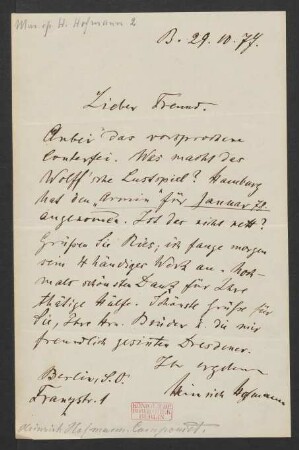 Mus. ep. H. Hofmann 2
B. 29. 10. 77.
Lieber Freund.
Anbei das versprochene
Conterfei. Was macht das
Wolff'sche Lustspiel? Hamburg
hat den „Armin" für Januar 78
angenommen. Ist das nicht nett?
Grüßen Sie Ries; ich fange morgen
sein 4händiges Werk an. Noch-
mals schönsten Dank für Ihre
thätige Hülfe. Schönste Grüße für
Sie, Ihre Hrn. Brüder u. die mir
freundlich gesinnten Dresdener.
Ihr ergebener
Heinrich Hofmann
Berlin, S.O.
Franzstr. 1
Heinrich Hofmann, Componist.